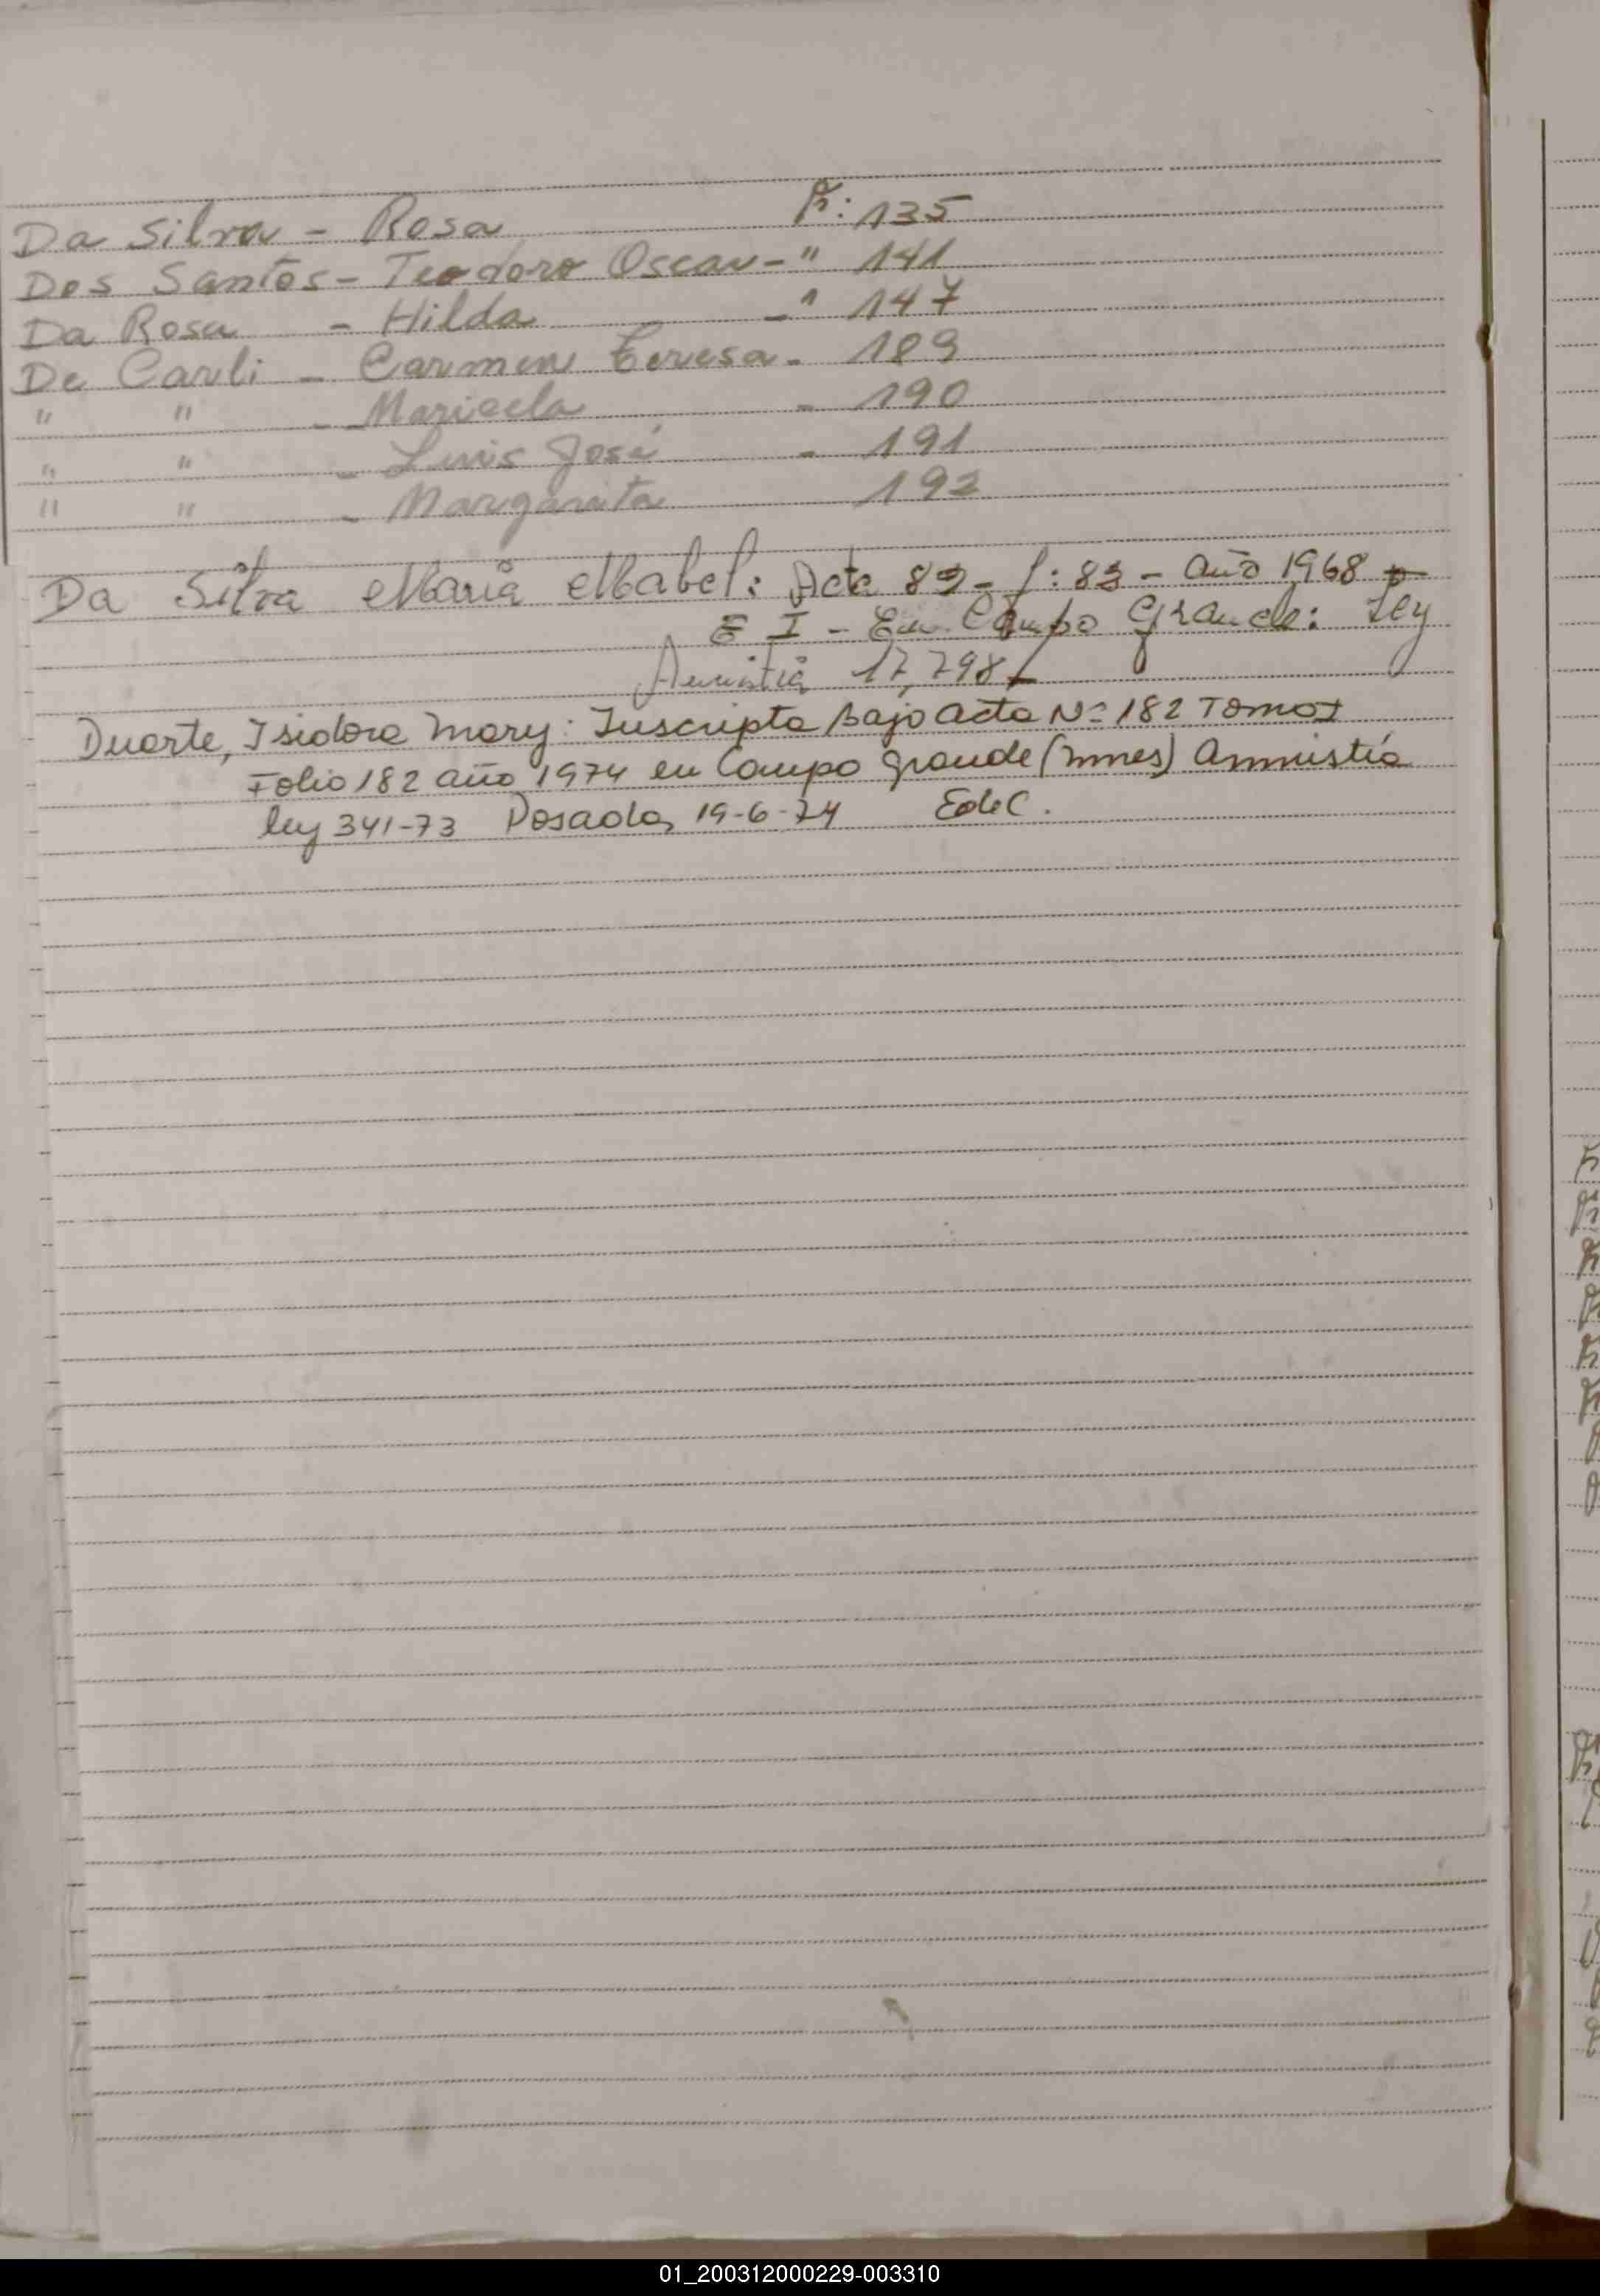 Da Silva - Rosa F: 135
Dos Santos - Teodoro Oscar - " 141
Da Rosa - Hilda - " 147
De Carli - Carmen Teresa - 189
" " - Maricela - 190
" " - Luis José - 191
" " - Margarita 192
Da Silva María Mabel: Acta 83 - f: 83 - año 1968
E I - En Campo Grande: Ley
Amnistía 17,798
Duarte, Isidora Mary: Inscripta Bajo acta Nº 182 Tomo I
Folio 182 año 1974 en Campo grande (mnes) Amnistía
ley 341-73 Posadas, 19-6-74 EdeC.
01_200312000229-003310